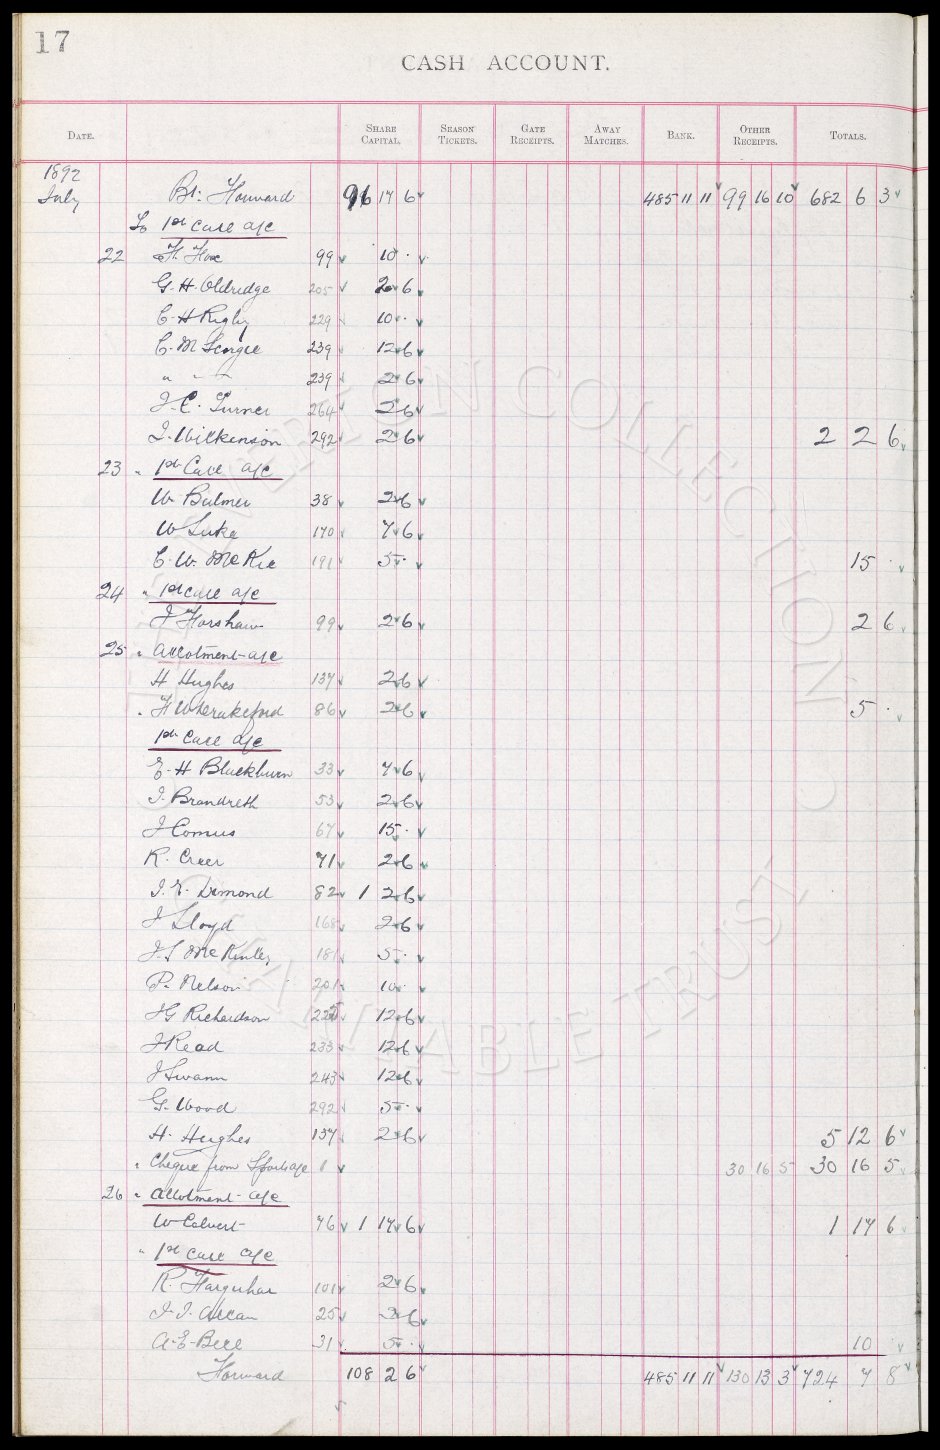 17
CASH ACCOUNT.
DATE. SHARE CAPITAL. SEASON TICKETS. GATE RECEIPTS. AWAY MATCHES. BANK. OTHER RECEIPTS. TOTALS.
1892
July Bt: Forward 96 17 6 485 11 11 99 16 10 682 6 3
To 1st Call a/c
22 H. Fox 99 10 .
G. H. Oldridge 205 2 6
C. H Rigby 229 10 .
C. M. 239 12 6
" " " 239 2 6
J. C. Turner 264 2 6
J. Wilkinson 292 2 6 2 2 6
23 " 1st Call a/c
W. Bulmer 38 2 6
W Luke 170 7 6
C. W. McKie 191 5 . 15 .
24 " 1st Call a/c
J Forshaw 99 2 6 2 6
25 " Allotment a/c
H Hughes 137 2 6
" F W Drakeford 86 2 6 5 .
1st Call a/c
E. H Blackburn 33 7 6
J. Brandreth 53 2 6
J Comus 67 15 .
R. Creer 71 2 6
J. E. Dimond 82 1 2 6
J Lloyd 168 2 6
J. S McKinley 181 5 .
P. Nelson 201 10 .
J G Richardson 225 12 6
J Read 233 12 6
J Swann 243 12 6
G. Wood 292 5 .
H. Hughes 137 2 6 5 12 6
" Cheque from Sports a/c 1 30 16 5 30 16 5
26 " Allotment a/c
W Calvert 76 1 17 6 1 17 6
" 1st Call a/c
R. Farquhar 101 2 6
J. J. Allan 25 2 6
A. E. Bell 31 5 . 10
Forward 108 2 6 485 11 11 130 13 3 724 7 8
EVERTON COLLECTION
CHARITABLE TRUST